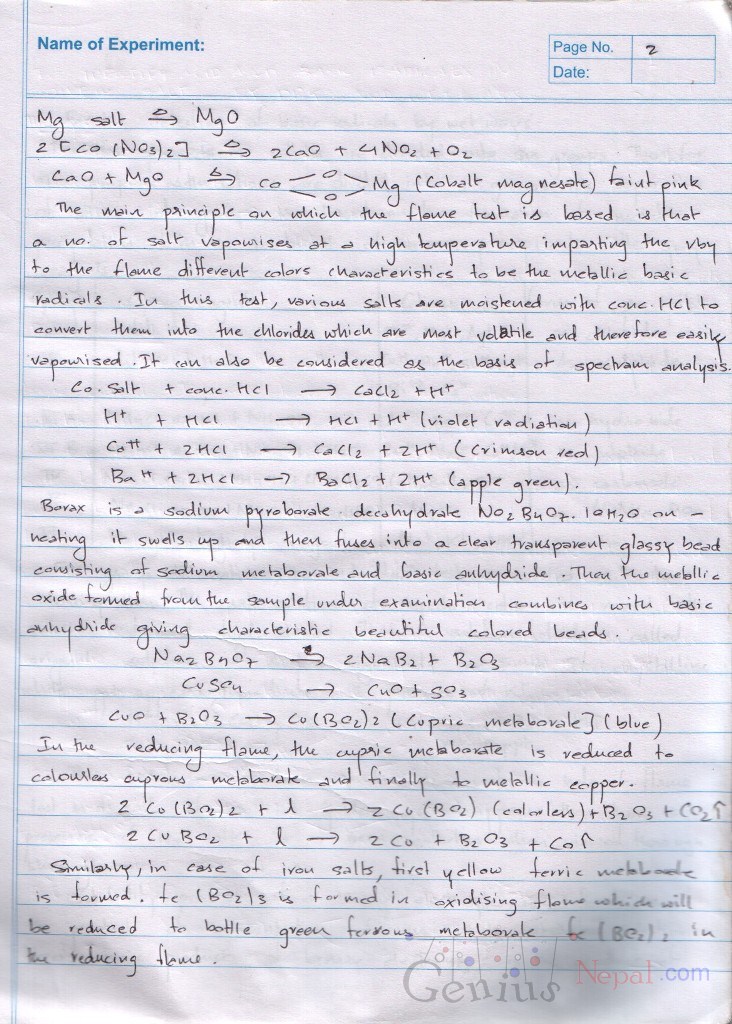 Name of Experiment:
Page No. 2
Date:
Mg salt △→ MgO
2 [Co (NO3)2] △→ 2CaO + 4NO2 + O2
CaO + MgO △→ Co <O O> Mg (Cobalt magnesate) faint pink
The main principle on which the flame test is based is that
a no. of salt vapourises at a high temperature imparting the vby
to the flame different colors characteristics to be the metallic basic
radicals. In this test, various salts are moistened with conc. HCl to
convert them into the chlorides which are most volatile and therefore easily
vapourised. It can also be considered as the basis of spectram analysis.
Co. Salt + conc. HCl → CaCl2 + H+
H+ + HCl → HCl + H+ (violet radiation)
Ca++ + 2HCl → CaCl2 + 2H+ (Crimson red)
Ba++ + 2HCl → BaCl2 + 2H+ (apple green).
Borax is a sodium pyroborate decahydrate No2B4O7. 10H2O on -
heating it swells up and then fuses into a clear transparent glassy bead
consisting of sodium metaborate and basic anhydride. Then the metallic
oxide formed from the sample under examination combines with basic
anhydride giving characteristic beautiful colored beads.
Na2B4O7 → 2NaB2 + B2O3
CuSO4 → CuO + SO3
CuO + B2O3 → Cu(BO2)2 (Cupric metaborate] (blue)
In the reducing flame, the cupric metaborate is reduced to
colourless cuprous metaborate and finally to metallic copper.
2 Co(BO2)2 + l → 2 Cu (BO2) (colorless) + B2O3 + CO2↑
2 Cu BO2 + l → 2 Co + B2O3 + Co↑
Similarly, in case of iron salts, first yellow ferric metaborate
is formed. fe (BO2)3 is formed in oxidising flame which will
be reduced to bottle green ferrous metaborate fe (BO2)2 in
the reducing flame.
Genius Nepal.com